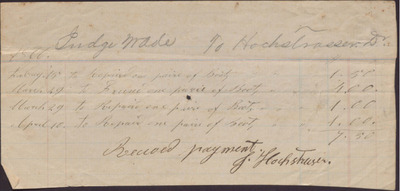 Judge Wade To Hochstrasser Dr
to Repair one pair of Boots 1.50
March 29 to one pair of Boots 4.00
March 29 to Repair one pair of Boots 1.00
April 10 to Repair one pair of Boots 1.00
7.50
Received payment
J. Hochstrasser